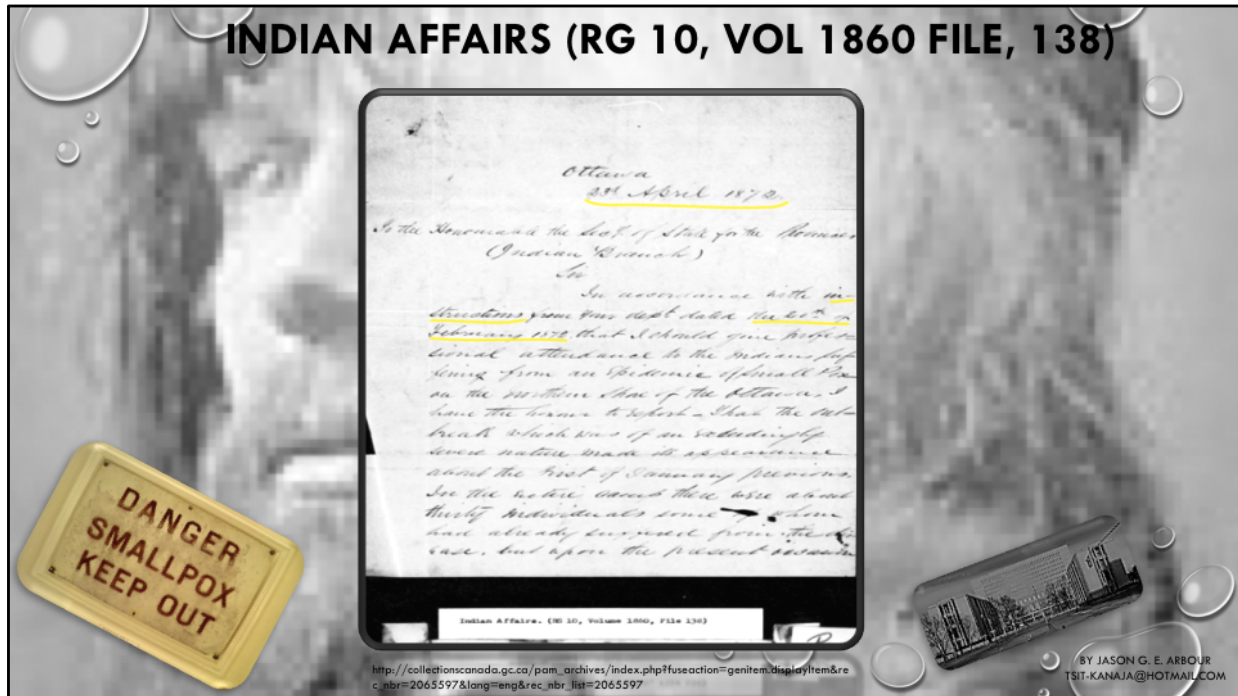 INDIAN AFFAIRS (RG 10, VOL 1860 FILE, 138)
Ottawa
23d April 1872
To the Honourable the Secy. of State for the Provinces
(Indian Branch)
Sir
In accordance with in-
structions from your dept dated the 20th of
February 1872 that I should give profes-
sional attendance to the Indians suf-
fering from an Epidemic of Small Pox
on the northern Shore of the Ottawa, I
have the honor to report - That the out-
break which was of an exceedingly
severe nature made its appearance
about the first of January previous.
In the entire camp there were about
thirty individuals some of whom
had already suffered from the dis-
ease, but upon the present occasion
Indian Affairs. (RG 10, Volume 1860, File 138)
DANGER
SMALLPOX
KEEP OUT
http://collectionscanada.gc.ca/pam_archives/index.php?fuseaction=genitem.displayItem&re
c_nbr=2065597&lang=eng&rec_nbr_list=2065597
BY JASON G. E. ARBOUR
TSIT-KANAJA@HOTMAIL.COM